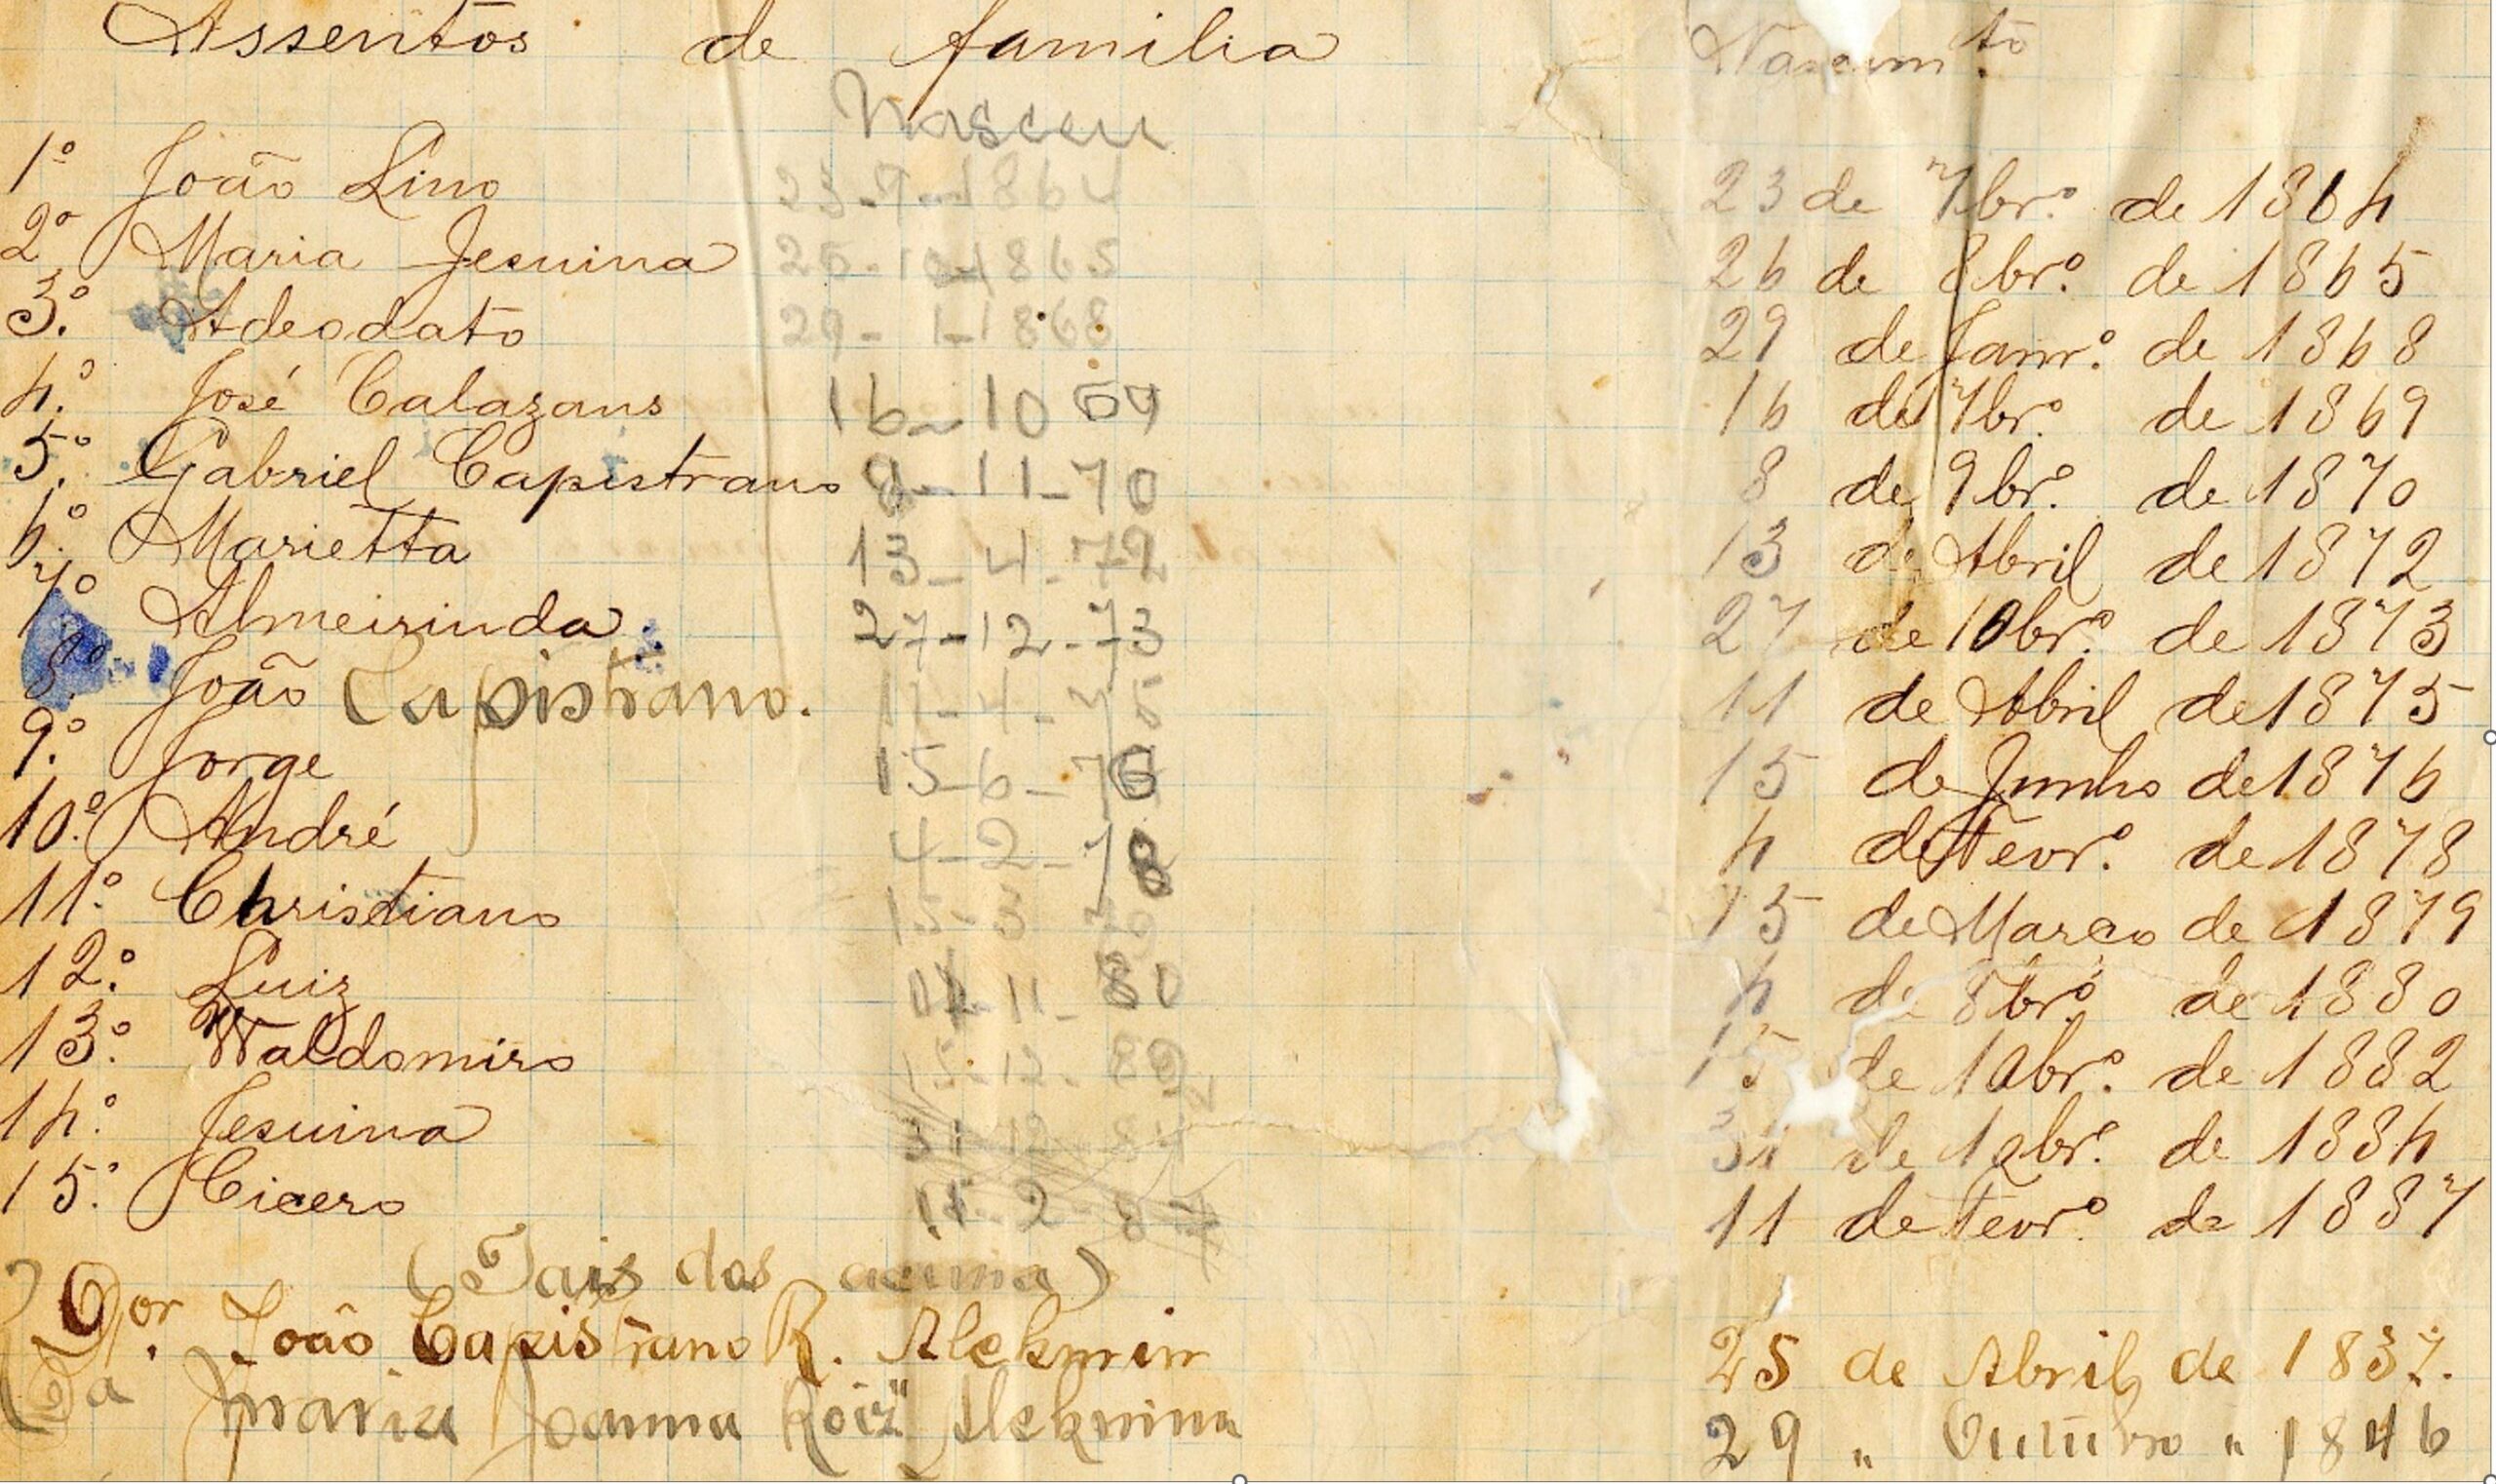 Assentos de familia Nascim.to
Nasceu
1º João Lino 23-9-1864 23 de 7br.º de 1864
2º Maria Jesuina 26-10-1865 26 de 8br.º de 1865
3.º Adeodato 29-1-1868 29 de Janr.º de 1868
4.º José Calazans 16-10 69 16 de 7br.º de 1869
5.º Gabriel Capistrano 8-11-70 8 de 9br.º de 1870
6.º Marietta 13-4-72 13 de Abril de 1872
7º Almeirinda 27-12-73 27 de 10br.º de 1873
8.º João Capistrano. 11-4-75 11 de Abril de 1875
9.º Jorge 15-6-76 15 de Junho de 1876
10.º André 4-2-78 4 de Fevr.º de 1878
11.º Christiano 15-3 15 de Março de 1879
12.º Luiz 11-80 4 de 8br.º de 1880
13.º Waldomiro 15-12-82 15 de 10br.º de 1882
14.º Jesuina 31-12-84 31 de 10br.º de 1884
15.º Cicero 11-2-87 11 de Fevr.º de 1887
(Pais dos acima)
Dor. João Capistrano R. Alckmin 25 de Abril de 1837.
Da Maria Joanna Roiz" Alckmina 29 " Outubro " 1846